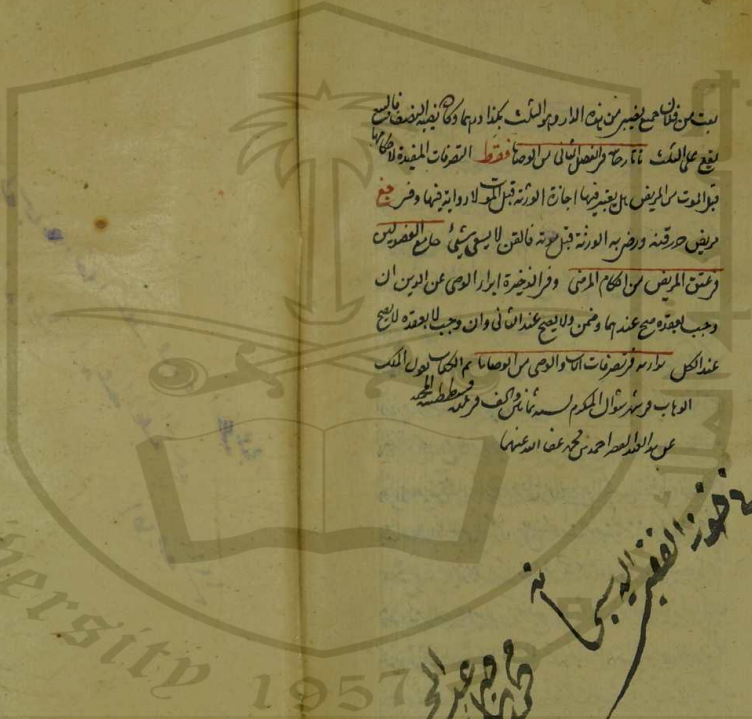 بعت من فلان جميع نصيبي من هذه الدار وهو الثلث بكذا درهما وكان نصيبه النصف فالبيع
يقع على الثلث تاتارخانيه في الفصل الثاني من الوصايا فقط التصرفات المفيدة لاحكامها
قبل الموت من المريض هل يعتبر فيها اجازة الورثة قبل الموت لا رواية فيها وفي جع
مريض حرر قنه ورضي به الورثة قبل موته فالقن لا يسعى بشيء جامع الفصولين
في عتق المريض من احكام المرضى وفي الذخيرة ابراء الوصي عن الدين ان
وجب بعقده صح عندهما وضمن ولا يصح عند الثاني وان وجب لا بعقده لا يصح
عند الكل في تصرفات الاب والوصي من الوصايا تم الكتاب بعون الملك
الوهاب في شهر شوال المكرم لسنة ثمانين والف في بلدة قسطنطنية
على يد العبد احمد بن محمد عفا الله عنهما
الفقير اليه سبحانه
University
1957